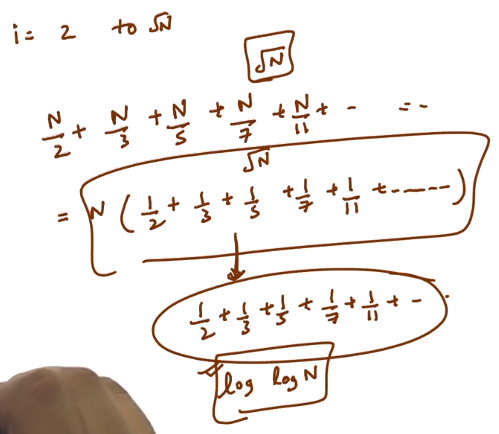 i = 2 to √N
√N
N/2 + N/3 + N/5 + N/7 + N/11 + - --
√N
= N ( 1/2 + 1/3 + 1/5 + 1/7 + 1/11 + ------ )
1/2 + 1/3 + 1/5 + 1/7 + 1/11 + - .
log log N